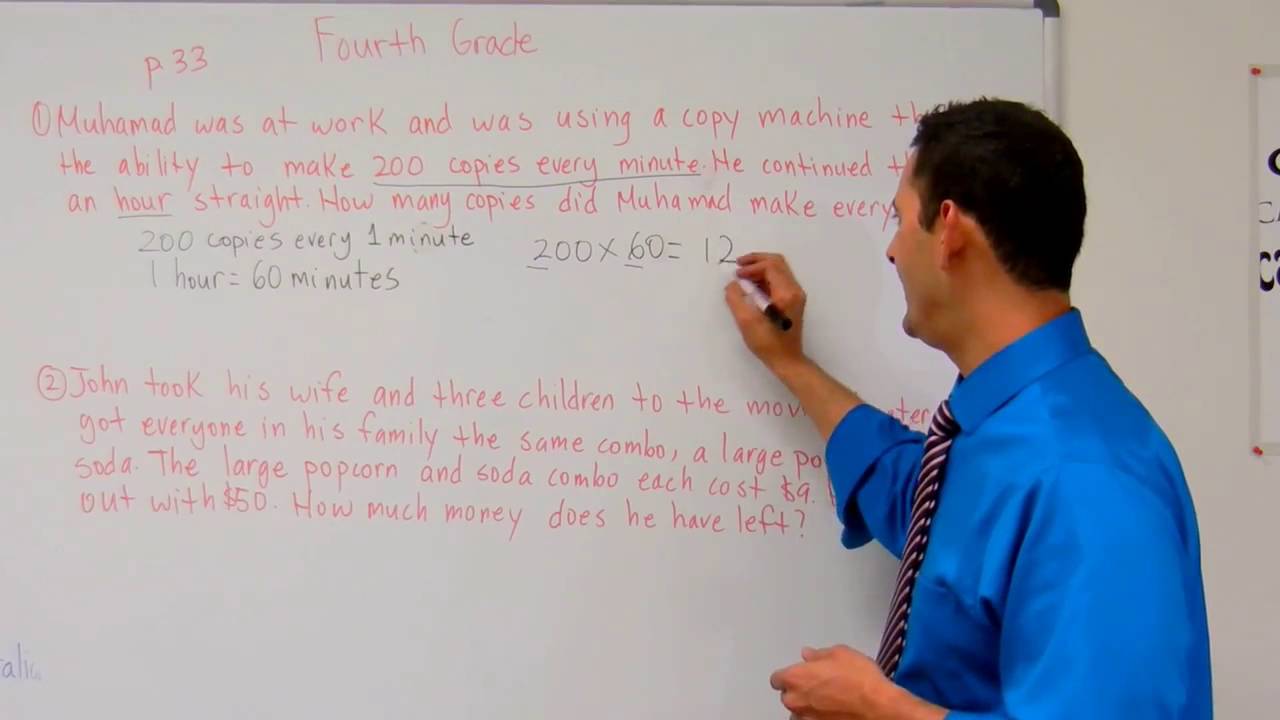 Fourth Grade
p.33
① Muhamad was at work and was using a copy machine
the ability to make 200 copies every minute. He continued
an hour straight. How many copies did Muhamad make every
200 copies every 1 minute
1 hour = 60 minutes
200 x 60 = 12
② John took his wife and three children to the
got everyone in his family the same combo, a large
soda. The large popcorn and soda combo each cost $9.
out with $50. How much money does he have left?